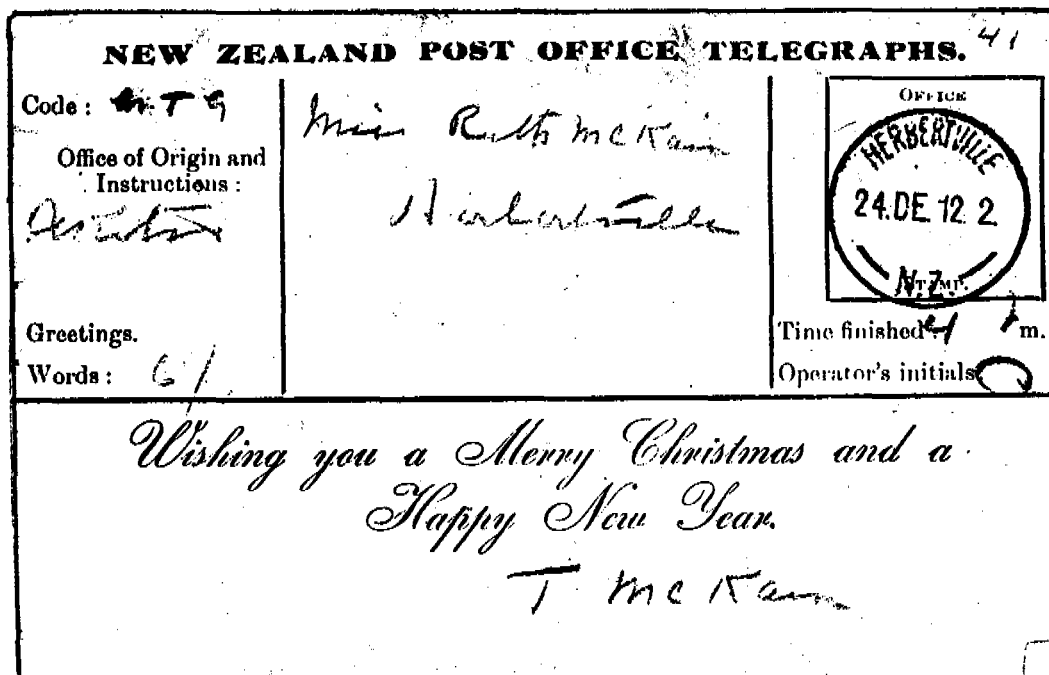 41
NEW ZEALAND POST OFFICE TELEGRAPHS.
Code : T G
Office of Origin and
Instructions :
Greetings.
Words : 6/
Miss Ruth McKain
Herbertville
OFFICE
HERBERTVILLE
24.DE 12 2
N.Z.
Time finished m.
Operator's initials
Wishing you a Merry Christmas and a
Happy New Year.
T McKain